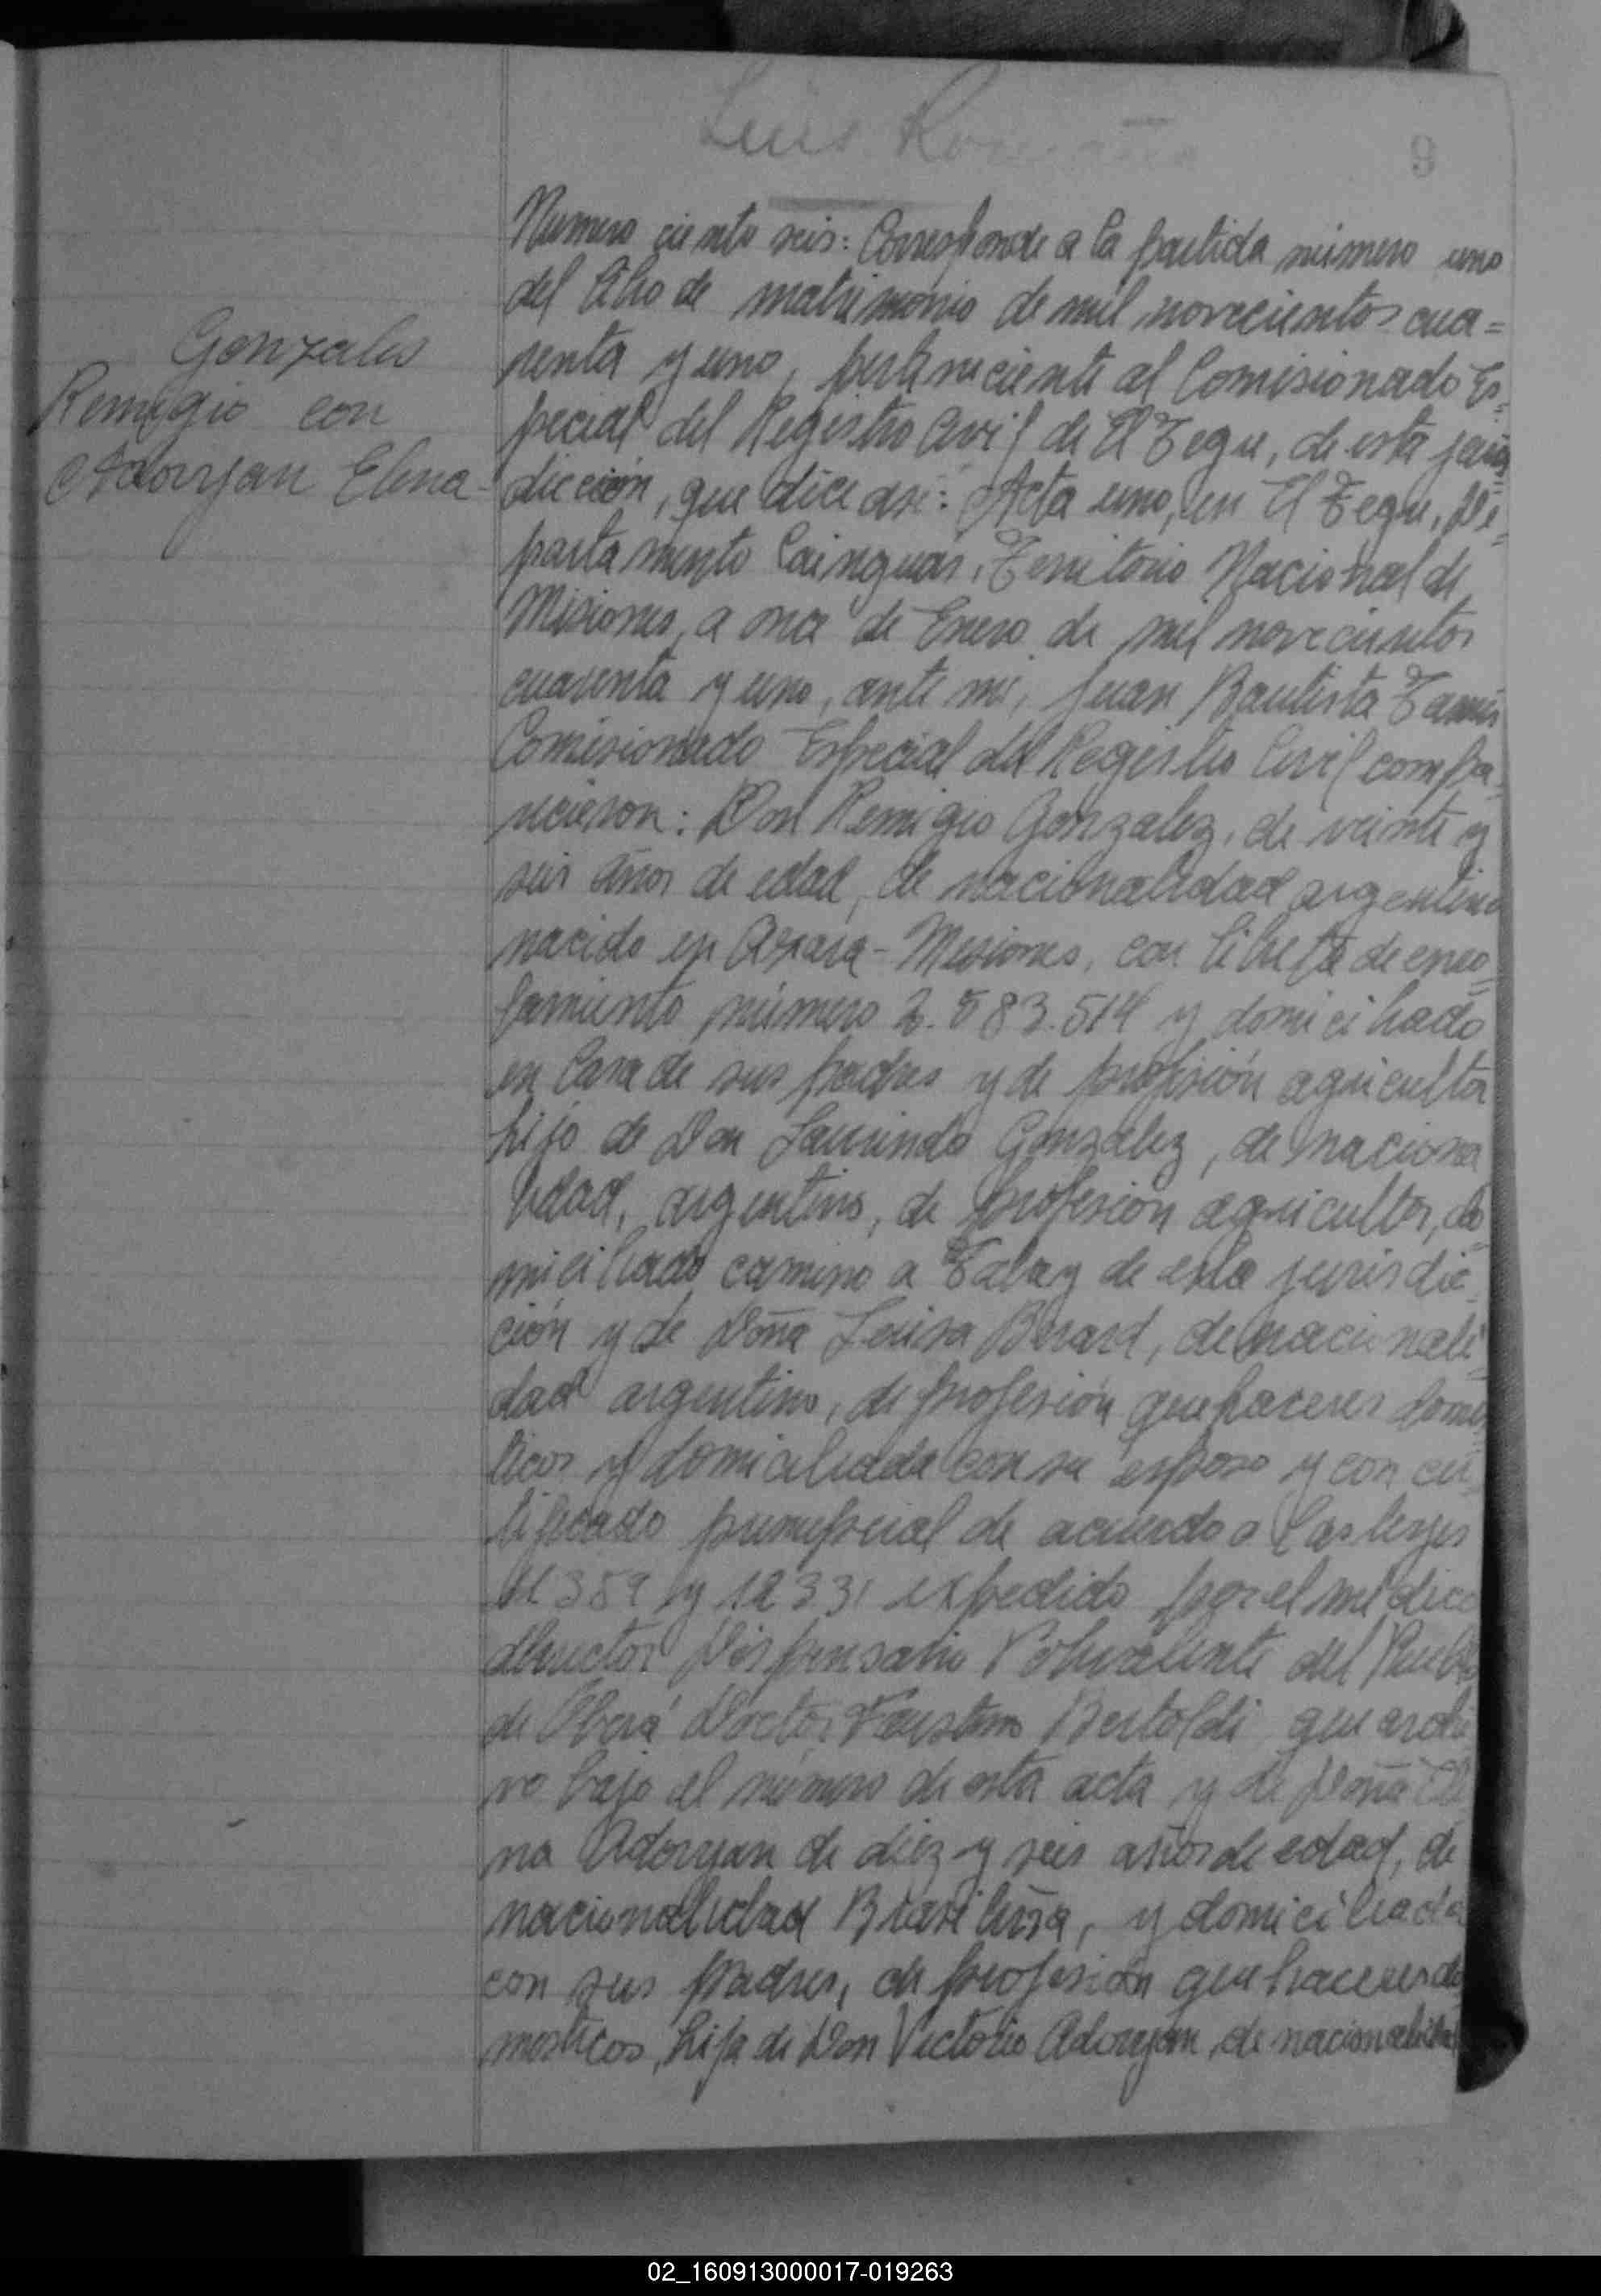 Luis
9
Gonzales
Remigio con
Adoryan Elena
Numero ciento seis: Corresponde a la partida número uno
del libro de matrimonio de mil novecientos cua=
renta y uno, perteneciente al Comisionado Es=
pecial del Registro Civil de El Tegu, de esta juris
dicción, que dice asi: Acta uno, en El Tegu, De=
partamento Cainguas, Territorio Nacional de
Misiones, a once de Enero de mil novecientos
cuarenta y uno, ante mi, Juan Bautista
Comisionado Especial del Registro Civil compa-
recieron: Don Remigio Gonzalez, de veinte y
seis años de edad, de nacionalidad argentino
nacido en Azara - Misiones, con libreta de enro=
lamiento número 2.583.514 y domiciliado
en Casa de sus padres y de profisión agricultor
hijo de Don Laurindo Gonzalez, de naciona
lidad, argentino, de profesión agricultor, do-
miciliado camino a Tabay de esta jurisdic-
ción y de Doña Luisa Berard, de nacionali-
dad argentino, de profesión quehaceres domes
ticos y domiciliada con su esposo y con cer-
tificado prenupcial de acuerdo a las leyes
11359 y 12331 expedido por el médico
director Dispensario Polivalente del Pueblo
de Oberá Doctor Faustino Bertoldi que archi
vo bajo el número de esta acta y de Doña Ele
na Adoryan de diez y seis años de edad, de
nacionalidad Brasileña, y domiciliada
con sus padres, de profesión quehaceres do
mesticos, hija de Don Victorio Adoryan, de nacionalidad
02_160913000017-019263